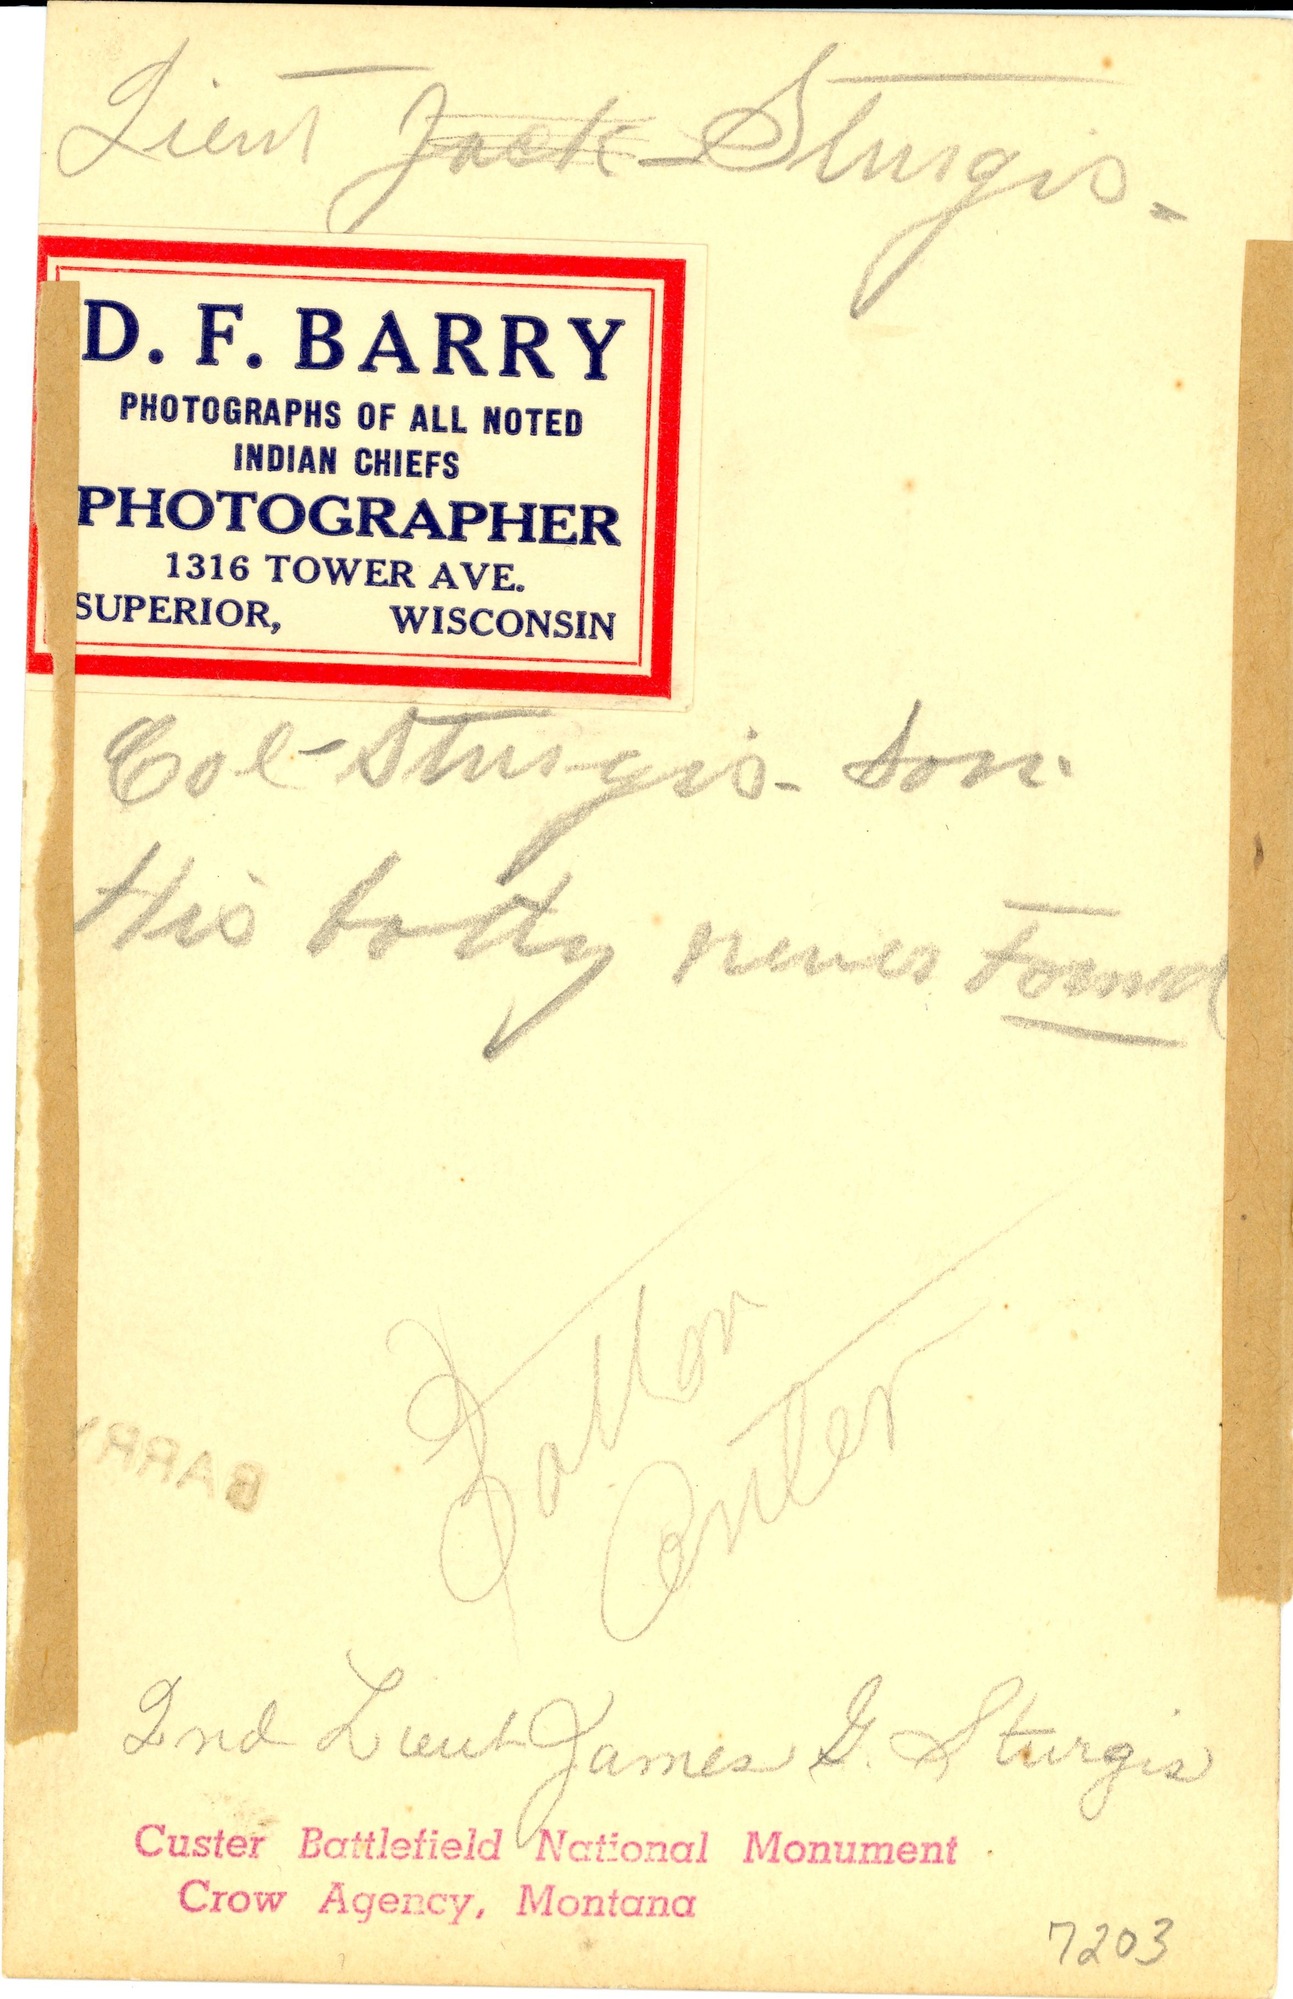 Lieut Jack Sturgis.
D. F. BARRY
PHOTOGRAPHS OF ALL NOTED
INDIAN CHIEFS
PHOTOGRAPHER
1316 TOWER AVE.
SUPERIOR, WISCONSIN
Col-Sturgis- Son.
His body never Found
BARRY
Center
2nd Lieut James G. Sturgis
Custer Battlefield National Monument
Crow Agency, Montana
7203